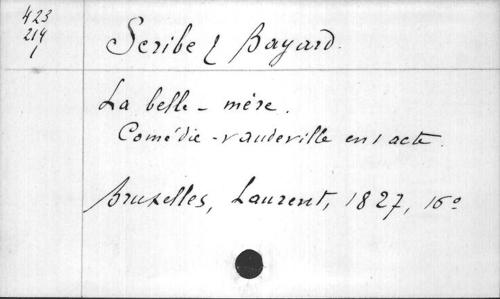 423
214
1
Scribe & Bayard.
La belle-mère.
Comédie-vaudeville en 1 acte.
Bruxelles, Laurent, 1827, 16o